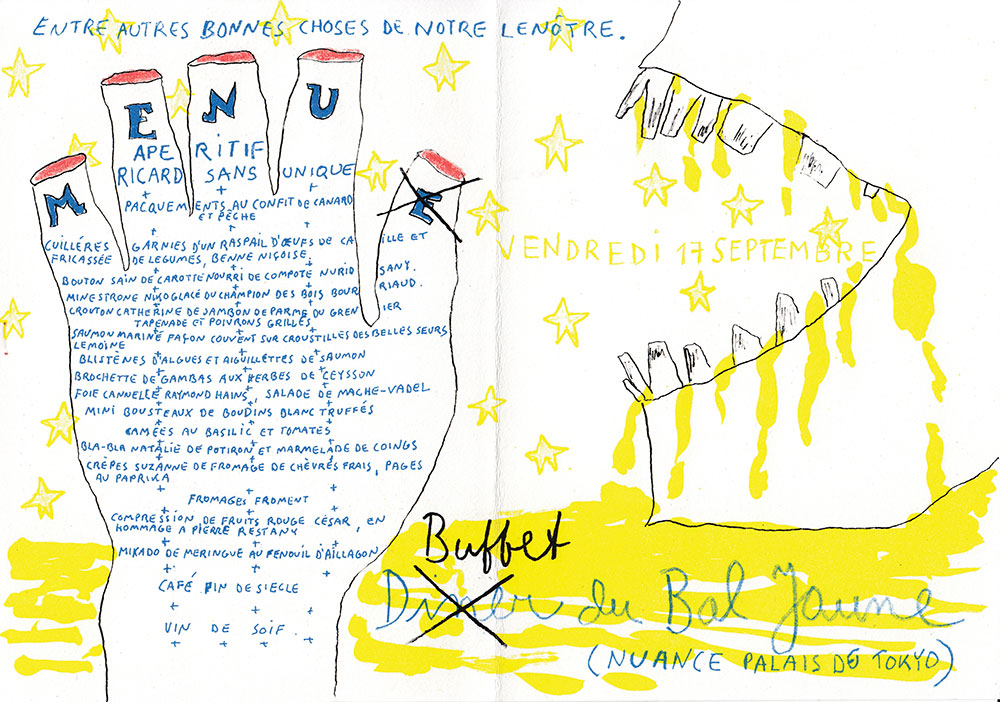 ENTRE AUTRES BONNES CHOSES DE NOTRE LENÔTRE.
M E N U E
APE RITIF
RICARD SANS UNIQUE
PACQUEMENTS AU CONFIT DE CANARD
ET PÊCHE
CUILLÉRES GARNIES D'UN RASPAIL D'ŒUFS DE CA ILLE ET
FRICASSÉE DE LEGUMES, BENNE NIÇOISE,
BOUTON SAIN DE CAROTTE NOURRI DE COMPOTE NURID SANY.
MINESTRONE NIKOGLACÉ DU CHAMPION DES BOIS BOUR RIAUD.
CROUTON CATHERINE DE JAMBON DE PARME DU GREN IER
TAPENADE ET POIVRONS GRILLÉS
SAUMON MARINÉ FAÇON COUVENT SUR CROUSTILLES DES BELLES SEURS
LEMOINE
BLISTÈNES D'ALGUES ET AIGUILLETTES DE SAUMON
BROCHETTE DE GAMBAS AUX HERBES DE CEYSSON
FOIE CANNELLE RAYMOND HAINS, SALADE DE MACHE-VADEL
MINI BOUSTEAUX DE BOUDINS BLANC TRUFFÉS
CAMÉES AU BASILIC ET TOMATES
BLA-BLA NATALIE DE POTIRON ET MARMELADE DE COINGS
CRÊPES SUZANNE DE FROMAGE DE CHÈVRES FRAIS, PAGES
AU PAPRIKA
FROMAGES FROMENT
COMPRESSION DE FRUITS ROUGE CÉSAR, EN
HOMMAGE A PIERRE RESTANY
MIKADO DE MERINGUE AU FENOUIL D'AILLAGON
CAFÉ FIN DE SIECLE
VIN DE SOIF
VENDREDI 17 SEPTEMBRE
Buffet
Diner du Bal Jaune
(NUANCE PALAIS DE TOKYO)